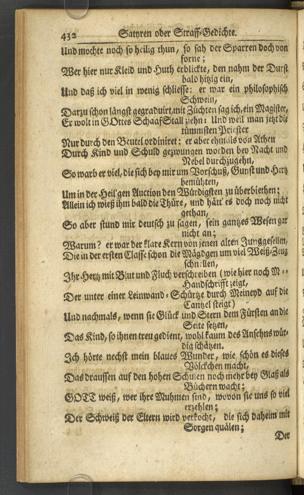 432 Satyren oder Straff-Gedichte.
Und mochte noch so heilig thun, so sah der Sparren doch von
forne;
Wer hier nur Kleid und Huth erblickte, den nahm der Durst
bald hitzig ein,
Und daß ich viel in wenig schliesse: er war ein philosophisch
Schwein,
Darzu schon längst gegraduirt, mit Züchten sag ich, ein Magister,
Er wolt in GOttes SchaafStall Und weil man jetzt die
tümmsten Priester
Nur durch den Beutel ordiniret: er aber ehmals von Athen
Durch Kind und Schuld gezwungen worden bey Nacht und
Nebel durchzugehn,
So warb er viel, die sich bey mir um Vorschub, Gunst und
bemühten,
Um in der Heil'gen Auction den Würdigsten zu überbiethen;
Allein ich wieß ihm bald die Thüre, und hätt' es doch noch nicht
gethan,
So aber stund mir deutsch zu sagen, sein gantzes Wesen gar
nicht an;
Warum? er war der klare Kern von jenen alten Junggesellen,
Die in der ersten Classe schon die Mägdgen um viel Weiß-Zeug
schnellen,
Ihr Hertz mit Blut und Fluch verschreiben (wie hier noch
Handschrifft zeigt,
Der unter einer Leinwand-Schürtze durch Meineyd auf die
Cantzel steigt)
Und nachmals, wenn sie Glück und Stern dem Fürsten an die
Seite setzen,
Das Kind, so ihnen treu gedient, wohl kaum des Ansehns wür-
dig schätzen.
Ich hörte nechst mein blaues Wunder, wie schön es dieses
Völckchen macht,
Das draussen auf den hohen Schulen noch mehr bey Glaß als
Büchern wacht;
GOTT weiß, wer ihre Muhmen sind, wovon sie uns so viel
erzehlen;
Der Schweiß der Eltern wird verkocht, die sich daheim mit
Sorgen quälen;
Der